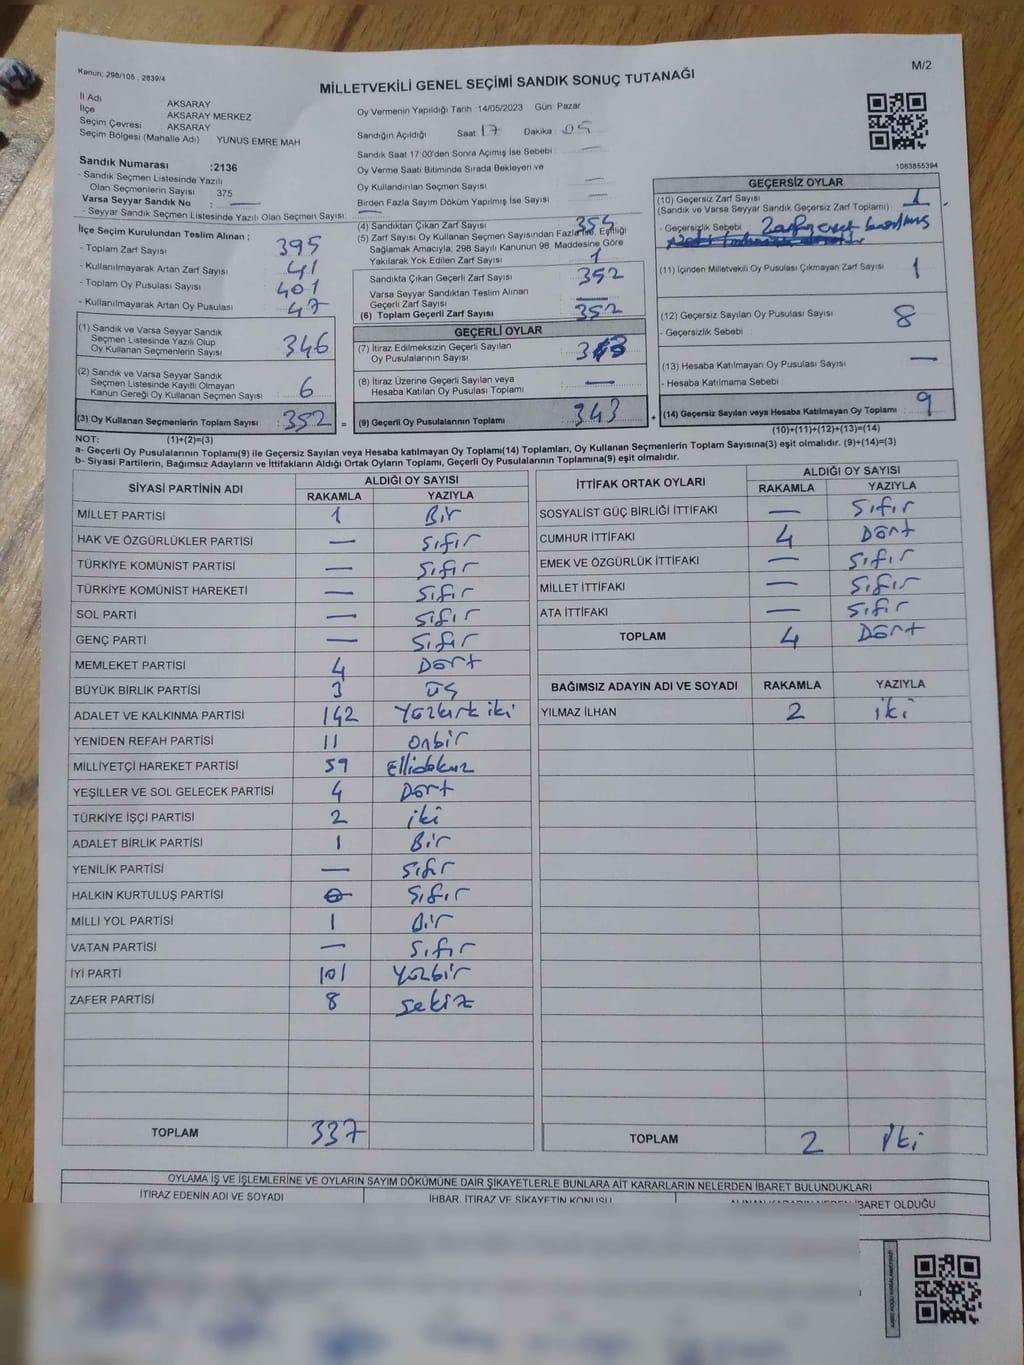 Kanun; 298/105 , 2839/4
M/2
MİLLETVEKİLİ GENEL SEÇİMİ SANDIK SONUÇ TUTANAĞI
İl Adı AKSARAY
İlçe AKSARAY MERKEZ
Seçim Çevresi AKSARAY
Seçim Bölgesi (Mahalle Adı) YUNUS EMRE MAH
Sandık Numarası :2136
- Sandık Seçmen Listesinde Yazılı
Olan Seçmenlerin Sayısı 375
Varsa Seyyar Sandık No : —
- Seyyar Sandık Seçmen Listesinde Yazılı Olan Seçmen Sayısı: —
İlçe Seçim Kurulundan Teslim Alınan ;
- Toplam Zarf Sayısı 395
- Kullanılmayarak Artan Zarf Sayısı 41
- Toplam Oy Pusulası Sayısı 401
- Kullanılmayarak Artan Oy Pusulası 47
(1) Sandık ve Varsa Seyyar Sandık
Seçmen Listesinde Yazılı Olup
Oy Kullanan Seçmenlerin Sayısı 346
(2) Sandık ve Varsa Seyyar Sandık
Seçmen Listesinde Kayıtlı Olmayan
Kanun Gereği Oy Kullanan Seçmen Sayısı 6
(3) Oy Kullanan Seçmenlerin Toplam Sayısı 352 =
Oy Vermenin Yapıldığı Tarih :14/05/2023 Gün: Pazar
Sandığın Açıldığı Saat: 17 Dakika : 05
Sandık Saat 17:00'den Sonra Açımış İse Sebebi : —
Oy Verme Saati Bitiminde Sırada Bekleyen ve
Oy Kullandırılan Seçmen Sayısı —
Birden Fazla Sayım Döküm Yapılmış İse Sayısı —
(4) Sandıktan Çıkan Zarf Sayısı 354
(5) Zarf Sayısı Oy Kullanan Seçmen Sayısından Fazla İse, Eşitliği
Sağlamak Amacıyla; 298 Sayılı Kanunun 98. Maddesine Göre
Yakılarak Yok Edilen Zarf Sayısı 1
Sandıkta Çıkan Geçerli Zarf Sayısı 352
Varsa Seyyar Sandıktan Teslim Alınan
Geçerli Zarf Sayısı —
(6) Toplam Geçerli Zarf Sayısı 352
GEÇERLİ OYLAR
(7) İtiraz Edilmeksizin Geçerli Sayılan
Oy Pusulalarının Sayısı 343
(8) İtiraz Üzerine Geçerli Sayılan veya
Hesaba Katılan Oy Pusulası Toplamı —
(9) Geçerli Oy Pusulalarının Toplamı 343 +
1083855394
GEÇERSİZ OYLAR
(10) Geçersiz Zarf Sayısı
(Sandık ve Varsa Seyyar Sandık Geçersiz Zarf Toplamı) : 1
- Geçersizlik Sebebi
(11) İçinden Milletvekili Oy Pusulası Çıkmayan Zarf Sayısı 1
(12) Geçersiz Sayılan Oy Pusulası Sayısı 8
- Geçersizlik Sebebi :
(13) Hesaba Katılmayan Oy Pusulası Sayısı —
- Hesaba Katılmama Sebebi
(14) Geçersiz Sayılan veya Hesaba Katılmayan Oy Toplamı 9
(10)+(11)+(12)+(13)=(14)
NOT: (1)+(2)=(3)
a- Geçerli Oy Pusulalarının Toplamı(9) ile Geçersiz Sayılan veya Hesaba katılmayan Oy Toplamı(14) Toplamları, Oy Kullanan Seçmenlerin Toplam Sayısına(3) eşit olmalıdır. (9)+(14)=(3)
b- Siyasi Partilerin, Bağımsız Adayların ve İttifakların Aldığı Ortak Oyların Toplamı, Geçerli Oy Pusulalarının Toplamına(9) eşit olmalıdır.
SİYASİ PARTİNİN ADI ALDIĞI OY SAYISI
RAKAMLA YAZIYLA
MİLLET PARTİSİ 1 Bir
HAK VE ÖZGÜRLÜKLER PARTİSİ — Sıfır
TÜRKİYE KOMÜNİST PARTİSİ — Sıfır
TÜRKİYE KOMÜNİST HAREKETİ — Sıfır
SOL PARTİ — Sıfır
GENÇ PARTİ — Sıfır
MEMLEKET PARTİSİ 4 Dört
BÜYÜK BİRLİK PARTİSİ 3 üç
ADALET VE KALKINMA PARTİSİ 142 Yüzkırk iki
YENİDEN REFAH PARTİSİ 11 onbir
MİLLİYETÇİ HAREKET PARTİSİ 59 Ellidokuz
YEŞİLLER VE SOL GELECEK PARTİSİ 4 Dört
TÜRKİYE İŞÇİ PARTİSİ 2 iki
ADALET BİRLİK PARTİSİ 1 Bir
YENİLİK PARTİSİ — Sıfır
HALKIN KURTULUŞ PARTİSİ 0 Sıfır
MİLLİ YOL PARTİSİ 1 Bir
VATAN PARTİSİ — Sıfır
İYİ PARTİ 101 Yüzbir
ZAFER PARTİSİ 8 sekiz
TOPLAM 337
İTTİFAK ORTAK OYLARI ALDIĞI OY SAYISI
RAKAMLA YAZIYLA
SOSYALİST GÜÇ BİRLİĞİ İTTİFAKI — Sıfır
CUMHUR İTTİFAKI 4 Dört
EMEK VE ÖZGÜRLÜK İTTİFAKI — Sıfır
MİLLET İTTİFAKI — Sıfır
ATA İTTİFAKI — Sıfır
TOPLAM 4 Dört
BAĞIMSIZ ADAYIN ADI VE SOYADI RAKAMLA YAZIYLA
YILMAZ İLHAN 2 iki
TOPLAM 2 iki
OYLAMA İŞ VE İŞLEMLERİNE VE OYLARIN SAYIM DÖKÜMÜNE DAİR ŞİKAYETLERLE BUNLARA AİT KARARLARIN NELERDEN İBARET BULUNDUKLARI
İTİRAZ EDENİN ADI VE SOYADI İHBAR, İTİRAZ VE ŞİKAYETİN KONUSU ALINAN KARARIN NEDEN İBARET OLDUĞU